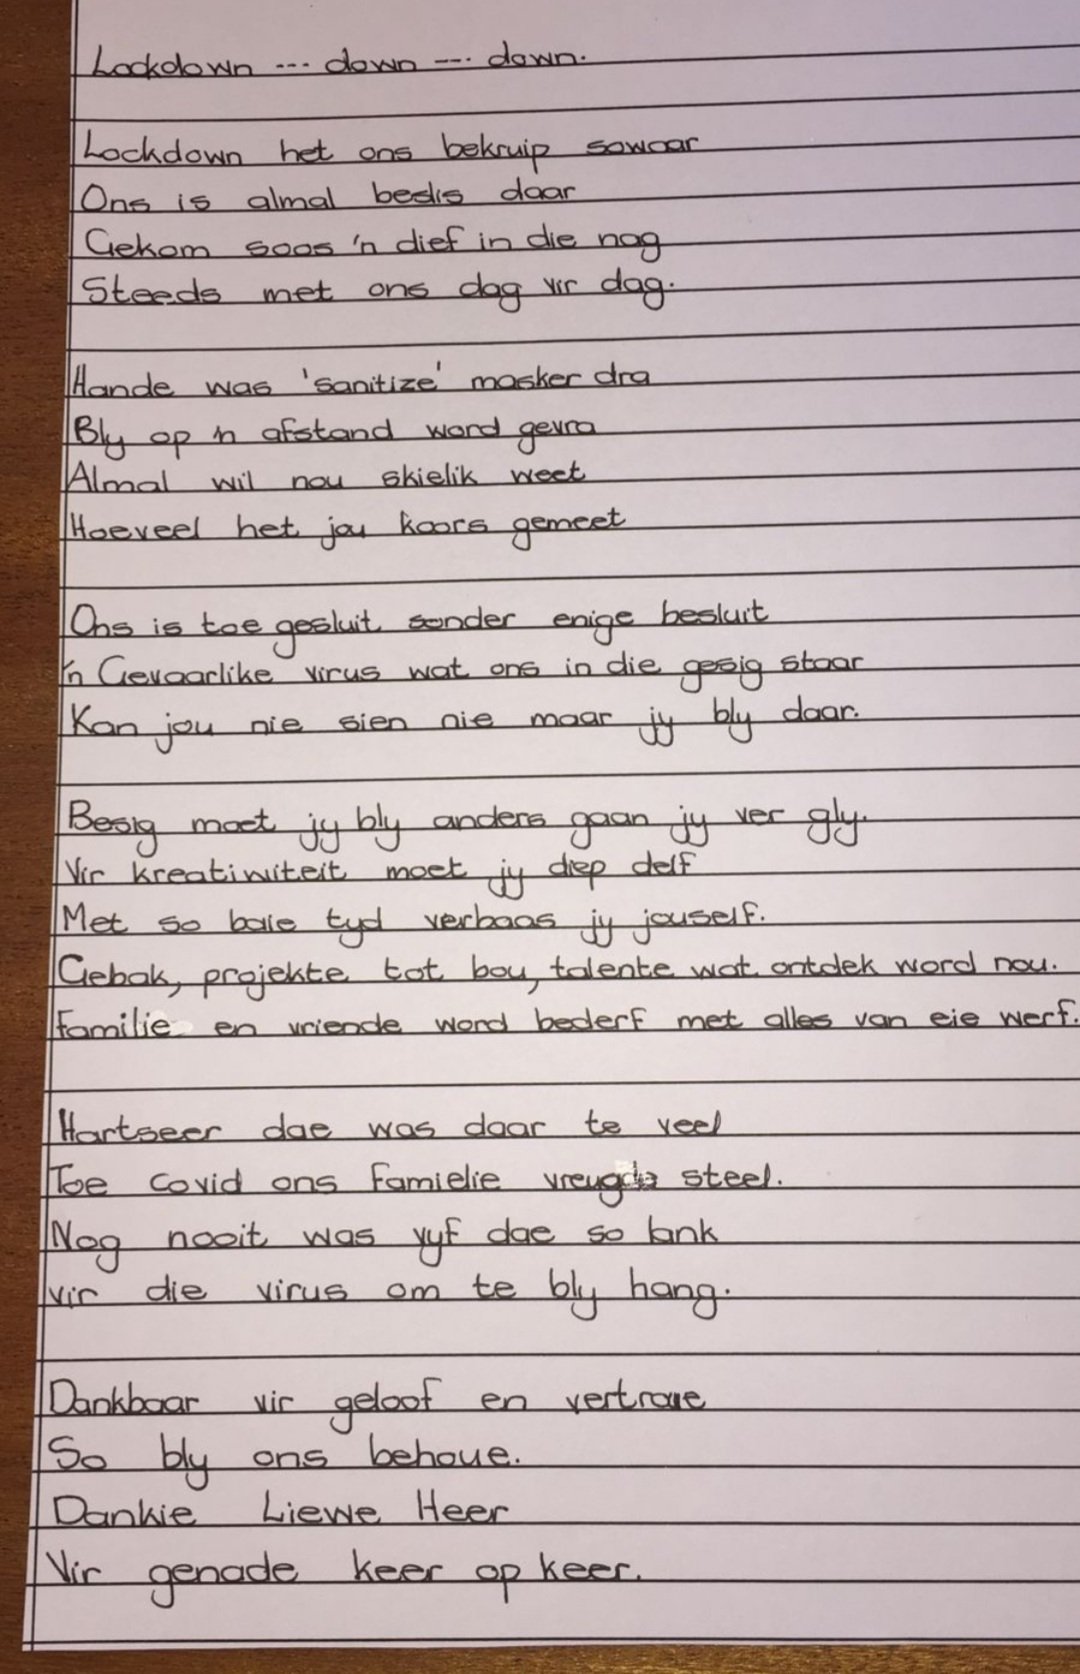 Lockdown --- down --- down.
Lockdown het ons bekruip sowaar
Ons is almal beslis daar
Gekom soos 'n dief in die nag
Steeds met ons dag vir dag.
Hande was 'sanitize' masker dra
Bly op 'n afstand word gevra
Almal wil nou skielik weet
Hoeveel het jou koors gemeet
Ons is toe gesluit sonder enige besluit
'n Gevaarlike virus wat ons in die gesig staar
Kan jou nie sien nie maar jy bly daar.
Besig moet jy bly anders gaan jy ver gly.
Vir kreatiwiteit moet jy diep delf
Met so baie tyd verbaas jy jouself.
Gebak, projekte tot bou, talente wat ontdek word nou.
Familie en vriende word bederf met alles van eie werf.
Hartseer dae was daar te veel
Toe covid ons Famielie vreugde steel.
Nog nooit was vyf dae so lank
vir die virus om te bly hang.
Dankbaar vir geloof en vertroue
So bly ons behoue.
Dankie Liewe Heer
Vir genade keer op keer.